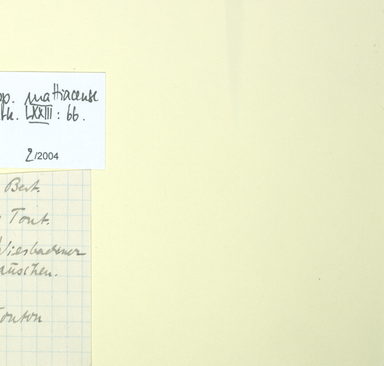 op. mattiacense
LXXIII: 66.
2/2004
Bert.
Tout.
Wiesbadener
äuschen.
Touton